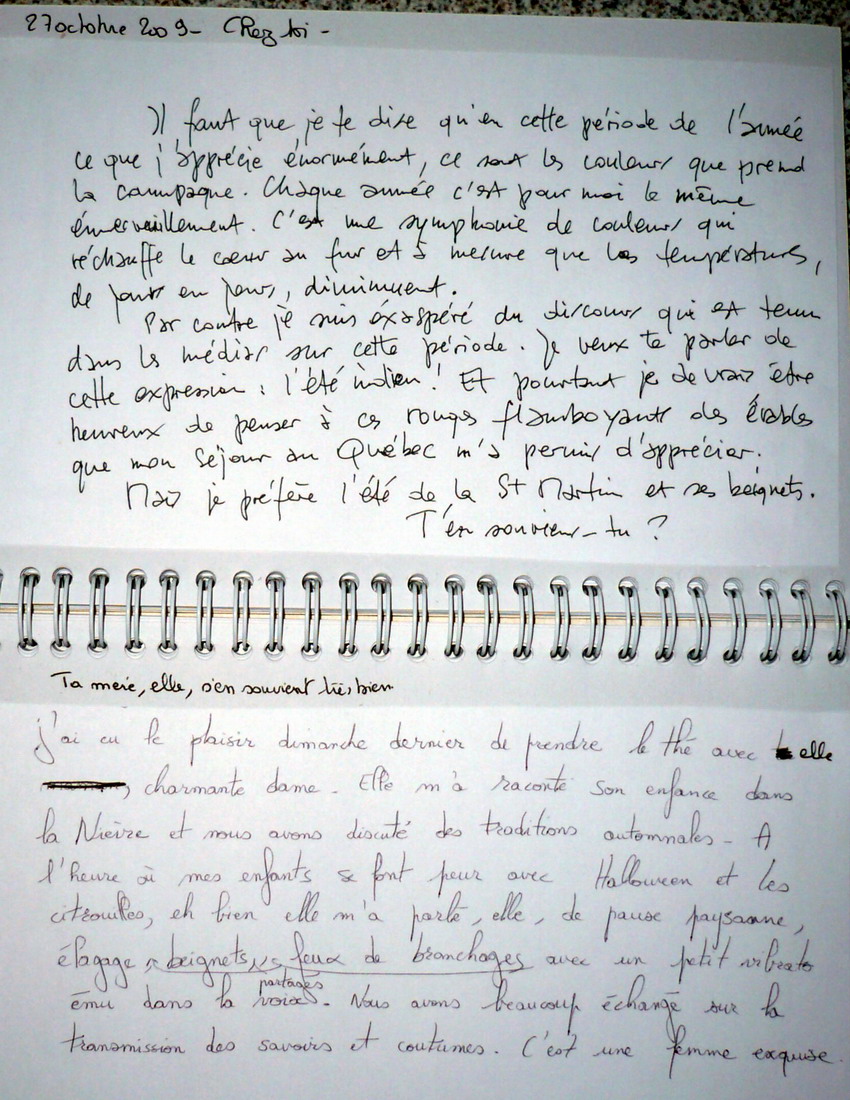 27 octobre 2009 - Chez toi -
Il faut que je te dise qu'en cette période de l'année
ce que j'apprécie énormément, ce sont les couleurs que prend
la campagne. Chaque année c'est pour moi le même
émerveillement. C'est une symphonie de couleurs qui
réchauffe le coeur au fur et à mesure que les températures,
de jours en jours, diminuent.
Par contre je suis exaspéré du discours qui est tenu
dans les médias sur cette période. Je veux te parler de
cette expression : l'été indien ! Et pourtant je devrais être
heureux de penser à ces rouges flamboyants des érables
que mon séjour au Québec m'a permis d'apprécier.
Mais je préfère l'été de la St Martin et ses beignets.
T'en souviens-tu ?
Ta mère, elle, s'en souvient très bien
J'ai eu le plaisir dimanche dernier de prendre le thé avec elle
, charmante dame. Elle m'a raconté son enfance dans
la Nièvre et nous avons discuté des traditions automnales - A
l'heure où mes enfants se font peur avec Halloween et les
citrouilles, eh bien elle m'a parlé, elle, de pause paysanne,
élagage, beignets, feux de branchages avec un petit vibrato
partagés
ému dans la voix. Nous avons beaucoup échangé sur la
transmission des savoirs et coutumes. C'est une femme exquise.